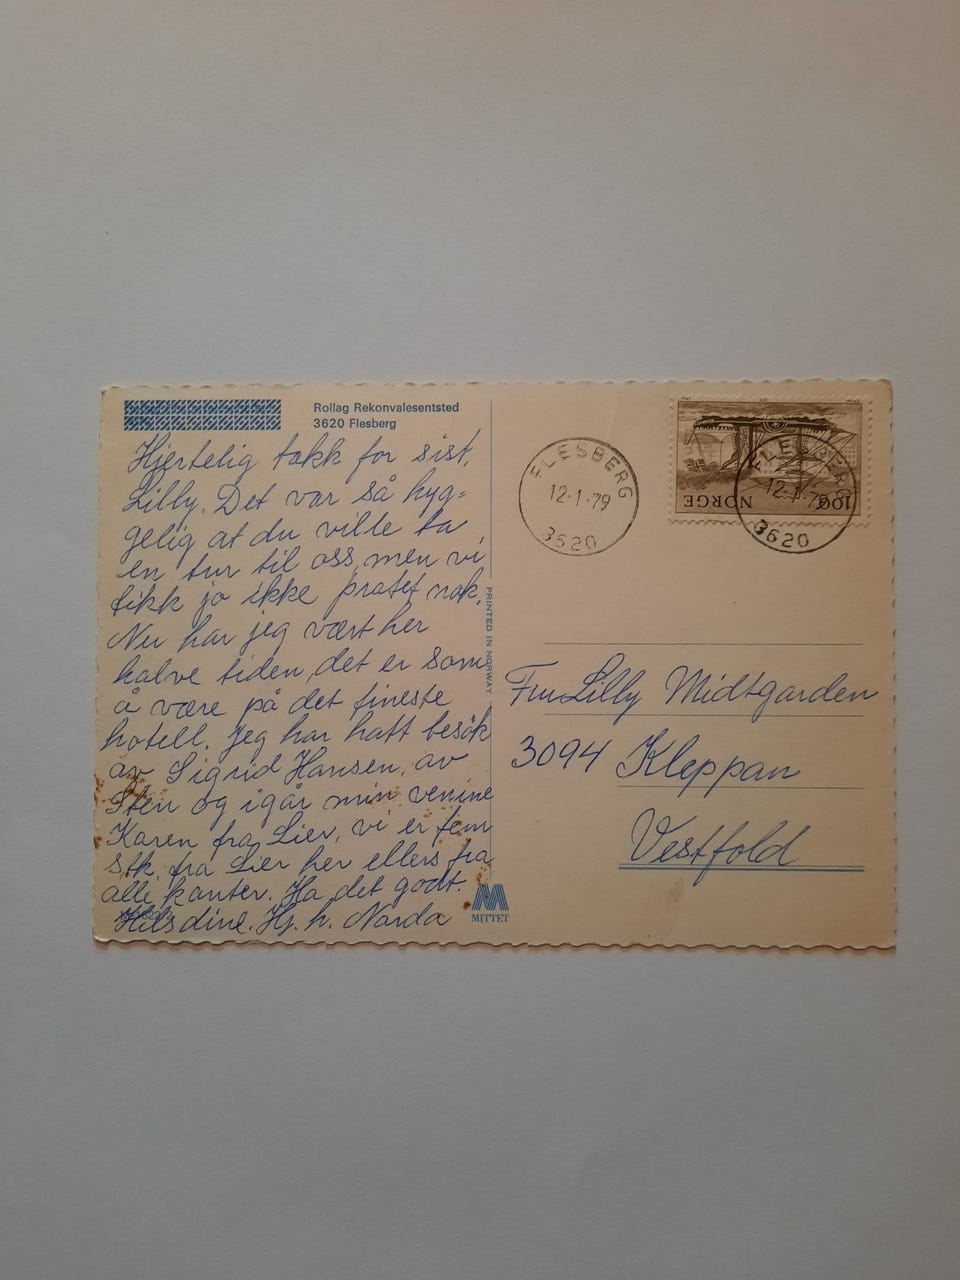 Rollag Rekonvalesentsted
3620 Flesberg
Hjertelig takk for sist,
Lilly. Det var så hyg=
gelig at du ville ta
en tur til oss, men vi
fikk jo ikke pratet nok.
Nu har jeg vært her
halve tiden, det er som
å være på det fineste
hotell. Jeg har hatt besøk
av Sigrid Hansen, av
Sten og igår min venine
Karen fra Lier, vi er fem
stk. fra Lier her ellers fra
alle kanter. Ha det godt.
Hils dine. Hj. h. Narda
PRINTED IN NORWAY
MITTET
FLESBERG
12-1-79
3620
NORGE
100
FLESBERG
12-1-79
3620
Fru Lilly Midtgarden
3094 Kleppan
Vestfold